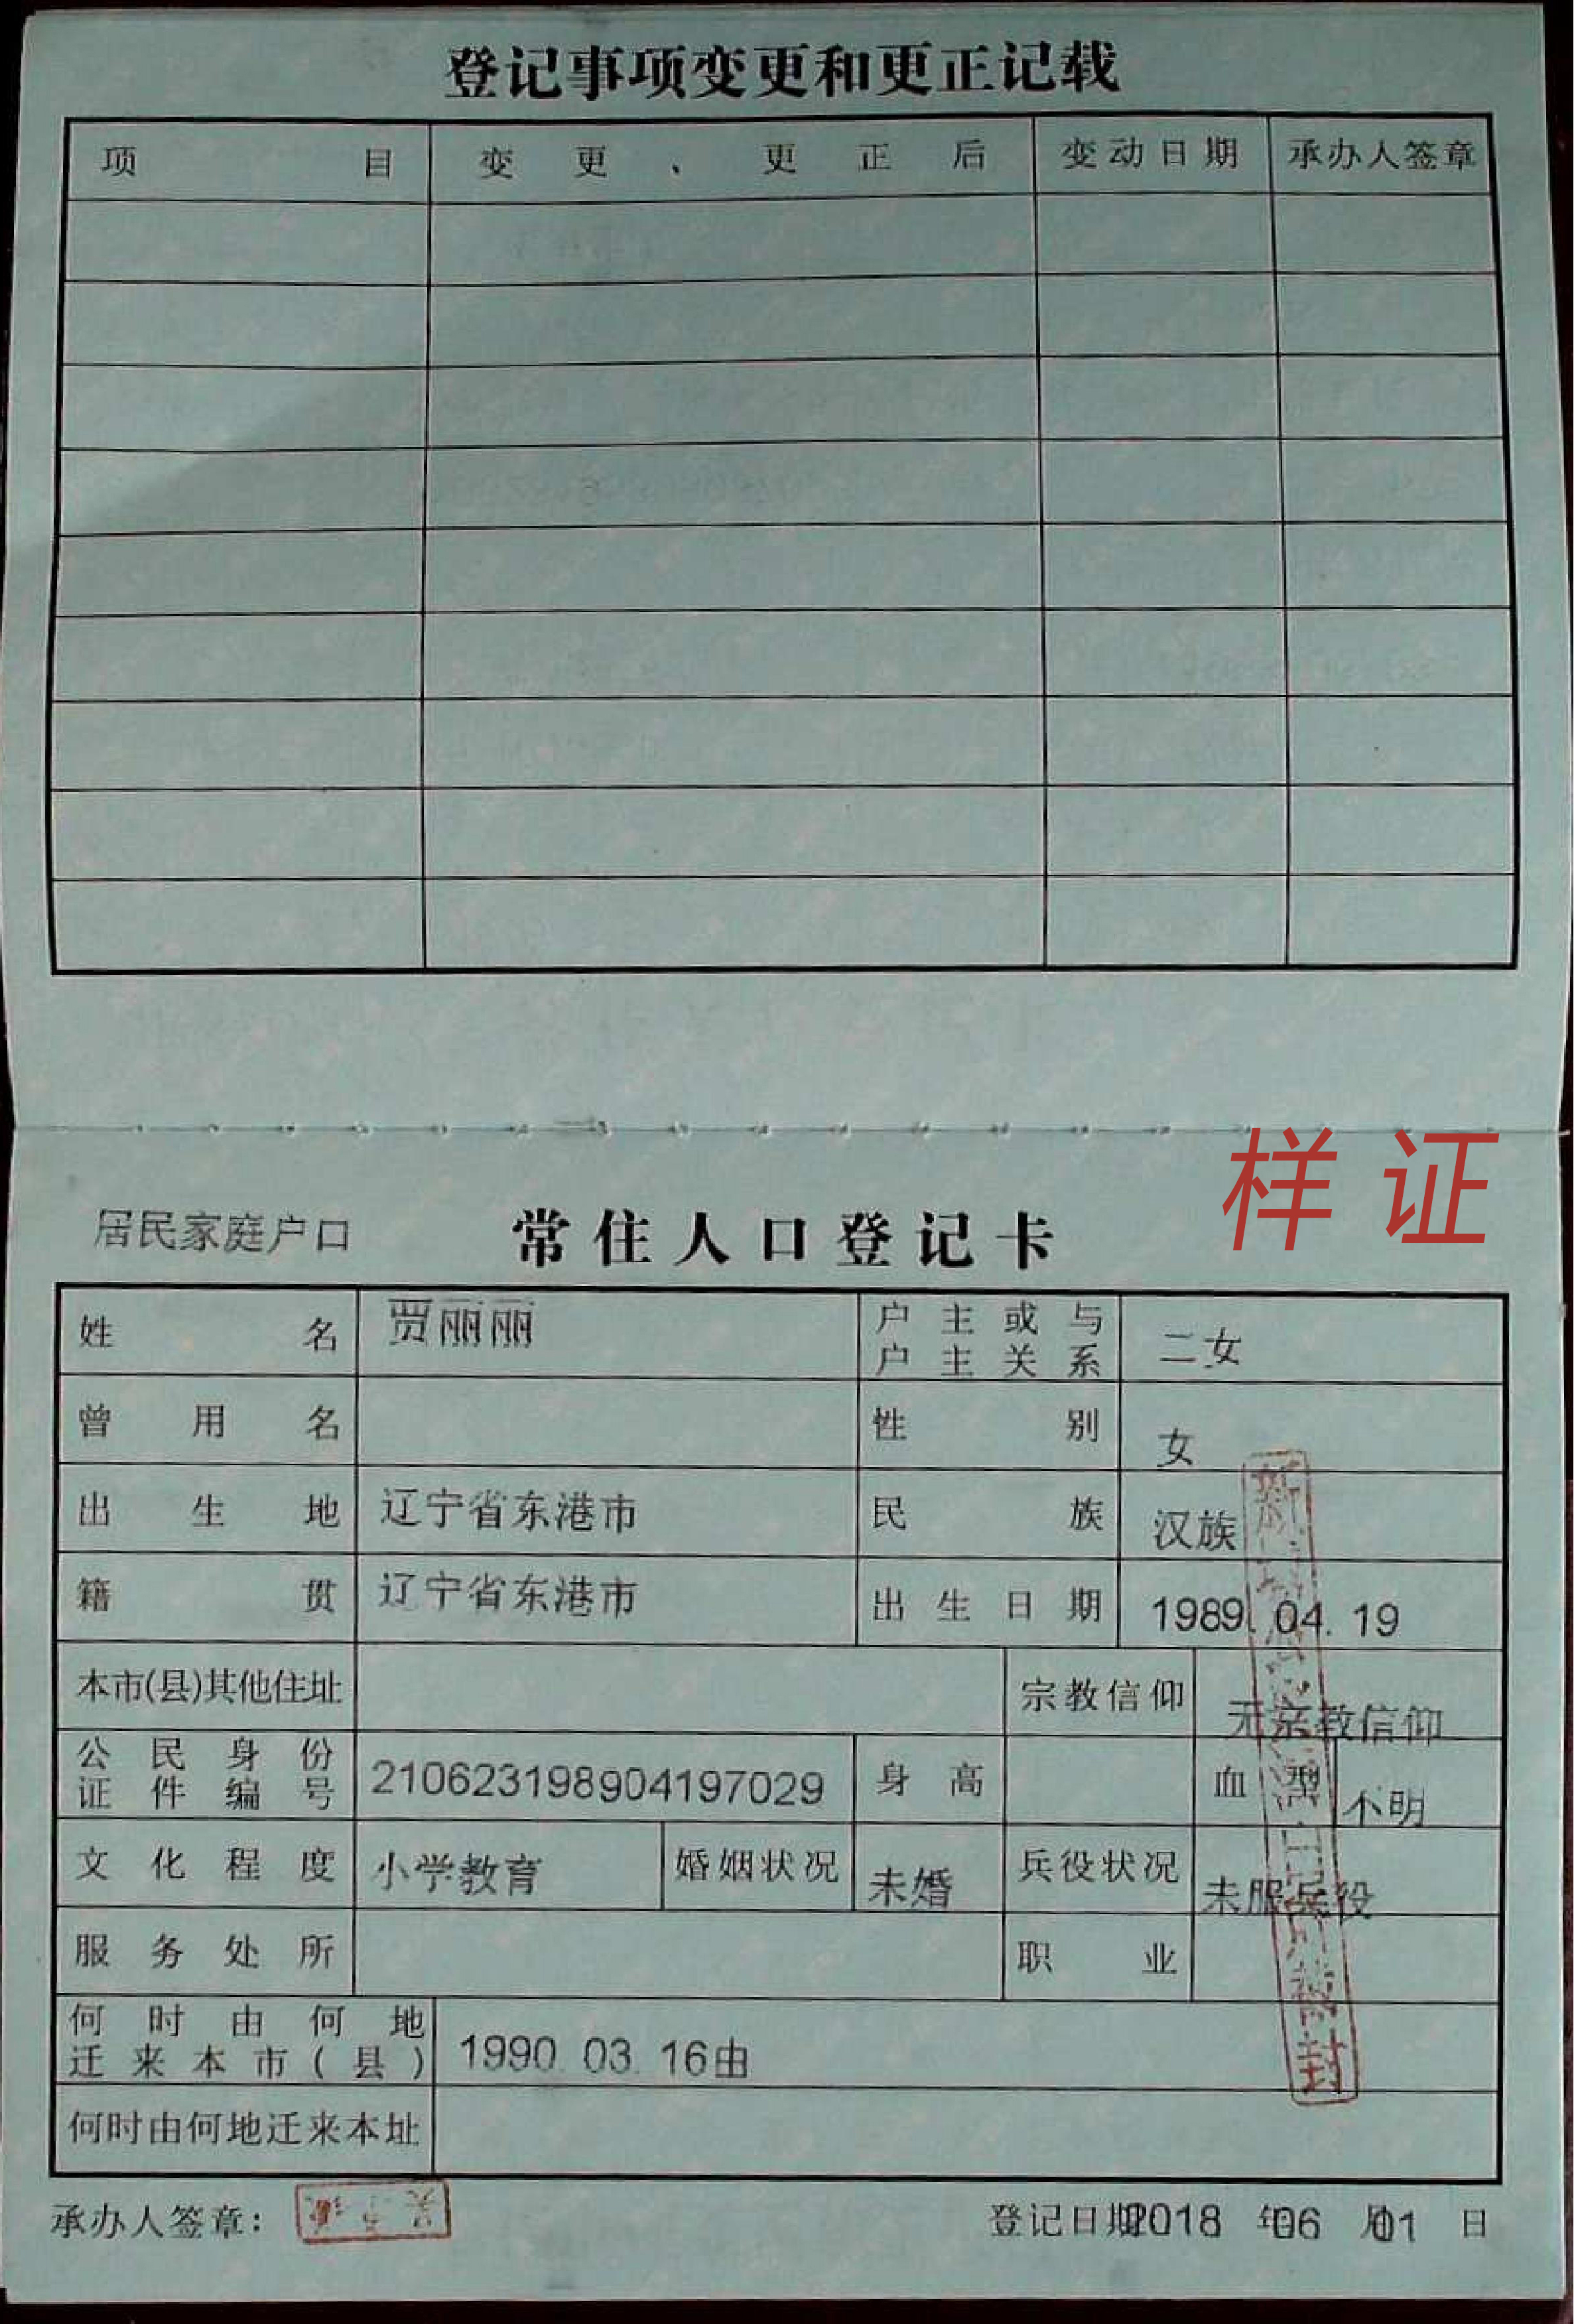 登记事项变更和更正记载
项目 变更、更正后 变动日期 承办人签章
样证
居民家庭户口 常住人口登记卡
姓名 贾丽丽 户主或与户主关系 二女
曾用名 性别 女
出生地 辽宁省东港市 民族 汉族
籍贯 辽宁省东港市 出生日期 1989.04.19
本市(县)其他住址 宗教信仰 无宗教信仰
公民身份证件编号 210623198904197029 身高 血型 不明
文化程度 小学教育 婚姻状况 未婚 兵役状况 未服兵役
服务处所 职业
何时由何地迁来本市(县) 1990.03.16由
何时由何地迁来本址
承办人签章: 登记日期2018年06月01日